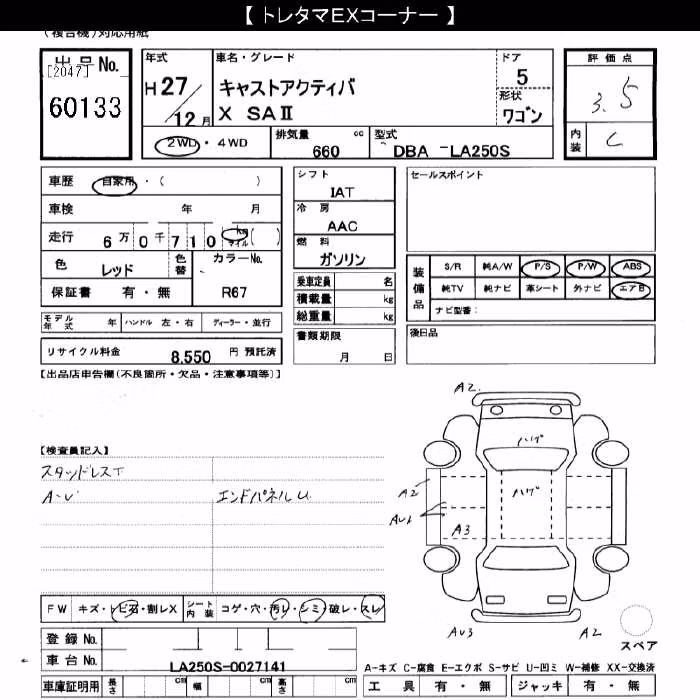 【 トレタマEXコーナー 】
(複合機)対応用紙
出品No.
[2047]
60133
年式
H 27/12月
車名・グレード
キャストアクティバ
X SAⅡ
ドア
5
形状
ワゴン
2WD・4WD
排気量 660 cc
型式 DBA -LA250S
評価点
3.5
内装 C
車歴 自家用・( )
車検 年 月
走行 6万0千710 km マイル ( )
色 レッド 色替
カラーNo. R67
保証書 有・無
モデル年式 年 ハンドル 左・右 ディーラー・並行
リサイクル料金 8,550 円 預託済
シフト
IAT
冷房
AAC
燃料
ガソリン
乗車定員 名
積載量 kg
総重量 kg
書類期限
月 日
セールスポイント
装備品
S/R 純A/W P/S P/W ABS
純TV 純ナビ 革シート 外ナビ エアB
ナビ型番:
後日品
【出品店申告欄(不良箇所・欠品・注意事項等)】
【検査員記入】
スタッドレスT
A・U
エンドパネルU
A2
ハゲ
ハゲ
A2
AU1
A3
AU3
A2
スペア
FW キズ・トビ石・割レX
シート内装 コゲ・穴・汚レ・シミ・破レ・スレ
登録No.
車台No. LA250S-0027141
車庫証明用 長さ cm 幅 cm 高さ cm
A-キズ C-腐食 E-エクボ S-サビ U-凹ミ W-補修 XX-交換済
工具 有・無 ジャッキ 有・無